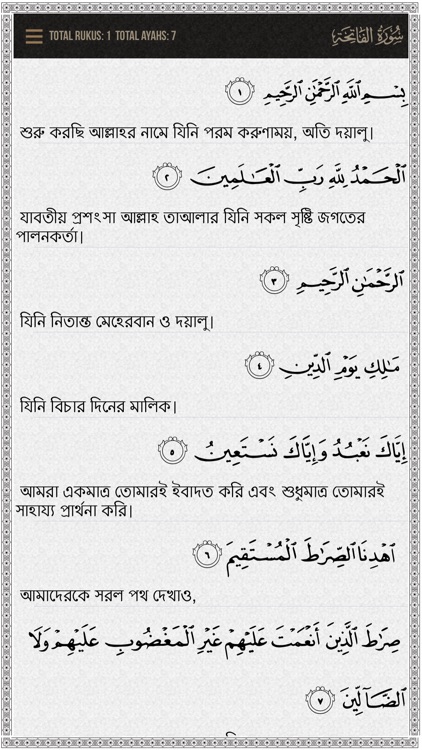 TOTAL RUKUS: 1 TOTAL AYAHS: 7 سُورَةُ الْفَاتِحَةِ
بِسْمِ ٱللَّهِ ٱلرَّحْمَٰنِ ٱلرَّحِيمِ ١
শুরু করছি আল্লাহর নামে যিনি পরম করুণাময়, অতি দয়ালু।
ٱلْحَمْدُ لِلَّهِ رَبِّ ٱلْعَٰلَمِينَ ٢
যাবতীয় প্রশংসা আল্লাহ তাআলার যিনি সকল সৃষ্টি জগতের
পালনকর্তা।
ٱلرَّحْمَٰنِ ٱلرَّحِيمِ ٣
যিনি নিতান্ত মেহেরবান ও দয়ালু।
مَٰلِكِ يَوْمِ ٱلدِّينِ ٤
যিনি বিচার দিনের মালিক।
إِيَّاكَ نَعْبُدُ وَإِيَّاكَ نَسْتَعِينُ ٥
আমরা একমাত্র তোমারই ইবাদত করি এবং শুধুমাত্র তোমারই
সাহায্য প্রার্থনা করি।
ٱهْدِنَا ٱلصِّرَٰطَ ٱلْمُسْتَقِيمَ ٦
আমাদেরকে সরল পথ দেখাও,
صِرَٰطَ ٱلَّذِينَ أَنْعَمْتَ عَلَيْهِمْ غَيْرِ ٱلْمَغْضُوبِ عَلَيْهِمْ وَلَا
ٱلضَّآلِّينَ ٧